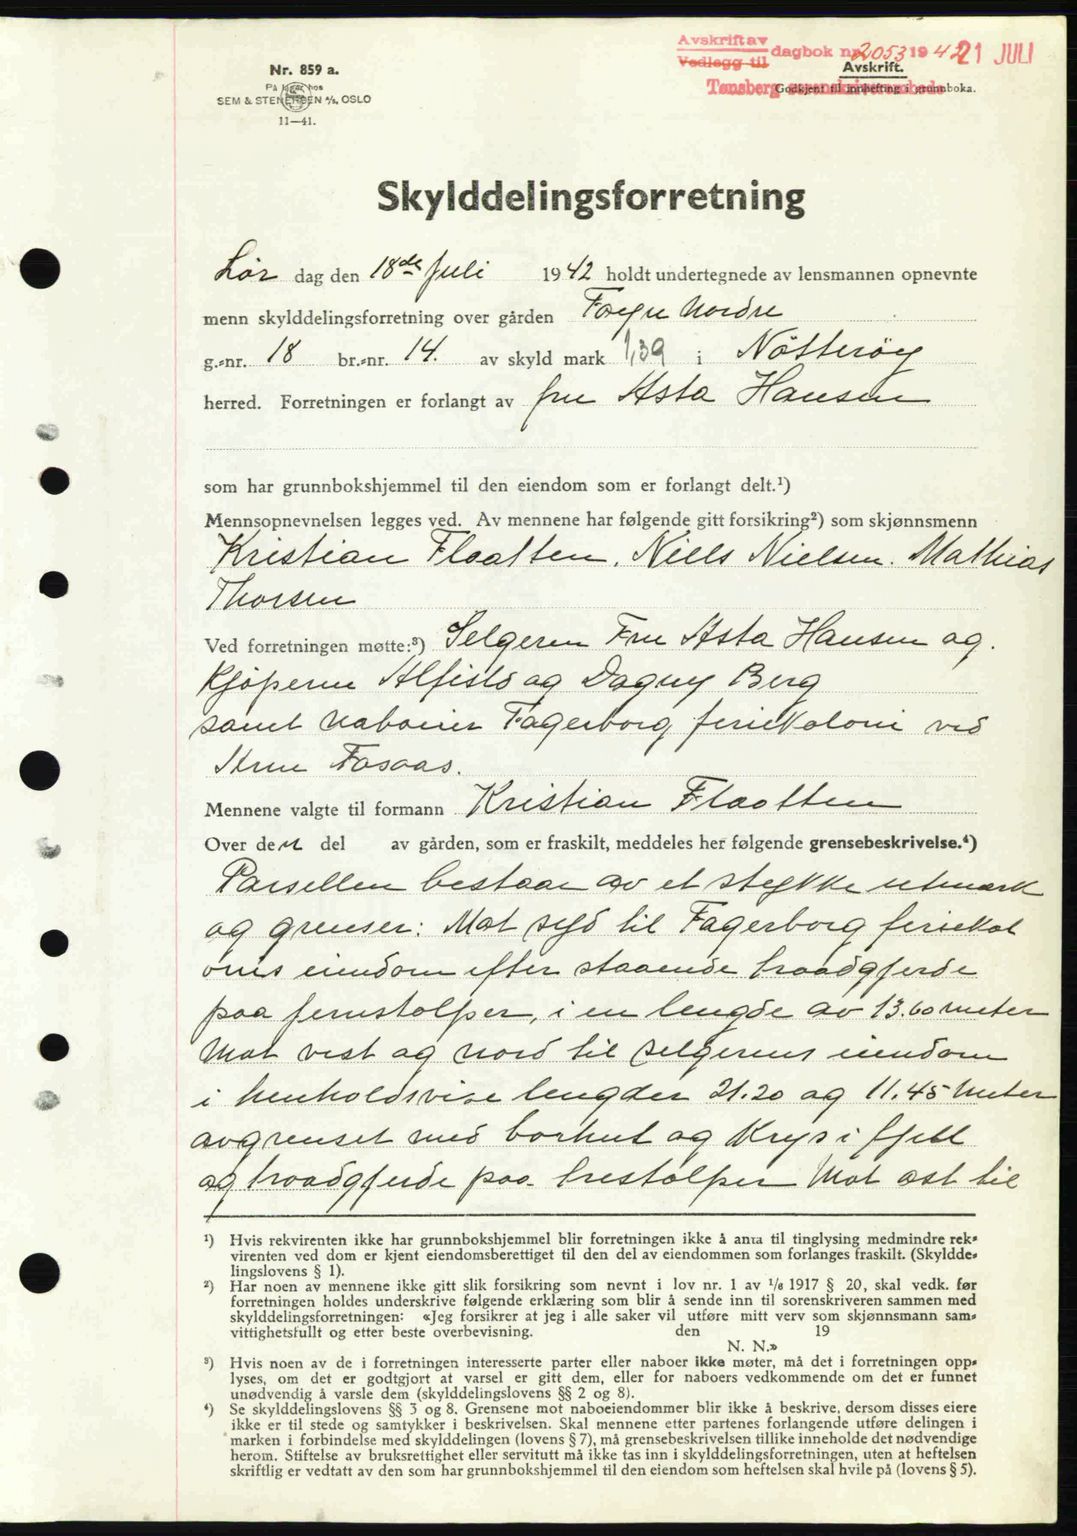 Avskrift av
Vedlegg til
dagbok nr 2053 1942 21 JULI
Tønsberg sorenskriverembede
Nr. 859 a.
På lager hos
SEM & STENERSEN A/S, OSLO
11—41.
Avskrift.
Godkjent til innhefting i grunnboka.
Skylddelingsforretning
Lør dag den 18de Juli 1942 holdt undertegnede av lensmannen opnevnte
menn skylddelingsforretning over gården Føyn Nordre
g.-nr. 18 br.-nr. 14. av skyld mark 1,39 i Nøtterøy
herred. Forretningen er forlangt av fru Asta Hansen
som har grunnbokshjemmel til den eiendom som er forlangt delt.¹)
Mennsopnevnelsen legges ved. Av mennene har følgende gitt forsikring²) som skjønnsmenn
Kristian Flaatten, Niels Nielsen. Mathias
Thorsen
Ved forretningen møtte:³) Selgeren Fru Asta Hansen og.
Kjøperne Alfild og Dagny Berg
samt naboeier Fagerborg feriekoloni ved
Arne Fosaas.
Mennene valgte til formann Kristian Flaatten
Over den del av gården, som er fraskilt, meddeles her følgende grensebeskrivelse.⁴)
Parsellen bestaar av et stykke utmark
og grenser: Mot syd til Fagerborg feriekol
onis eiendom efter staaende braadgjerde
paa jernstolper, i en lengde av 13.60 meter
Mot vest og nord til selgerens eiendom
i henholdsvise lengder 21.20 og 11.45 meter
avgrenset med borhul og Kryss i fjell
og braadgjerde paa trestolper Mot øst til
¹) Hvis rekvirenten ikke har grunnbokshjemmel blir forretningen ikke å anta til tinglysing medmindre rek-
virenten ved dom er kjent eiendomsberettiget til den del av eiendommen som forlanges fraskilt. (Skyldde-
lingslovens § 1).
²) Har noen av mennene ikke gitt slik forsikring som nevnt i lov nr. 1 av ¹/₆ 1917 § 20, skal vedk. før
forretningen holdes underskrive følgende erklæring som blir å sende inn til sorenskriveren sammen med
skylddelingsforretningen: «Jeg forsikrer at jeg i alle saker vil utføre mitt verv som skjønnsmann sam-
vittighetsfullt og etter beste overbevisning. den 19
N. N.»
³) Hvis noen av de i forretningen interesserte parter eller naboer ikke møter, må det i forretningen opp-
lyses, om det er godtgjort at varsel er gitt dem, eller for naboers vedkommende om det er funnet
unødvendig å varsle dem (skylddelingslovens §§ 2 og 8).
⁴) Se skylddelingslovens §§ 3 og 8. Grensene mot naboeiendommer blir ikke å beskrive, dersom disses eiere
ikke er til stede og samtykker i beskrivelsen. Skal mennene etter partenes forlangende utføre delingen i
marken i forbindelse med skylddelingen (lovens § 7), må grensebeskrivelsen tillike inneholde det nødvendige
herom. Stiftelse av bruksrettighet eller servitutt må ikke tas inn i skylddelingsforretningen, uten at heftelsen
skriftlig er vedtatt av den som har grunnbokshjemmel til den eiendom som heftelsen skal hvile på (lovens § 5).